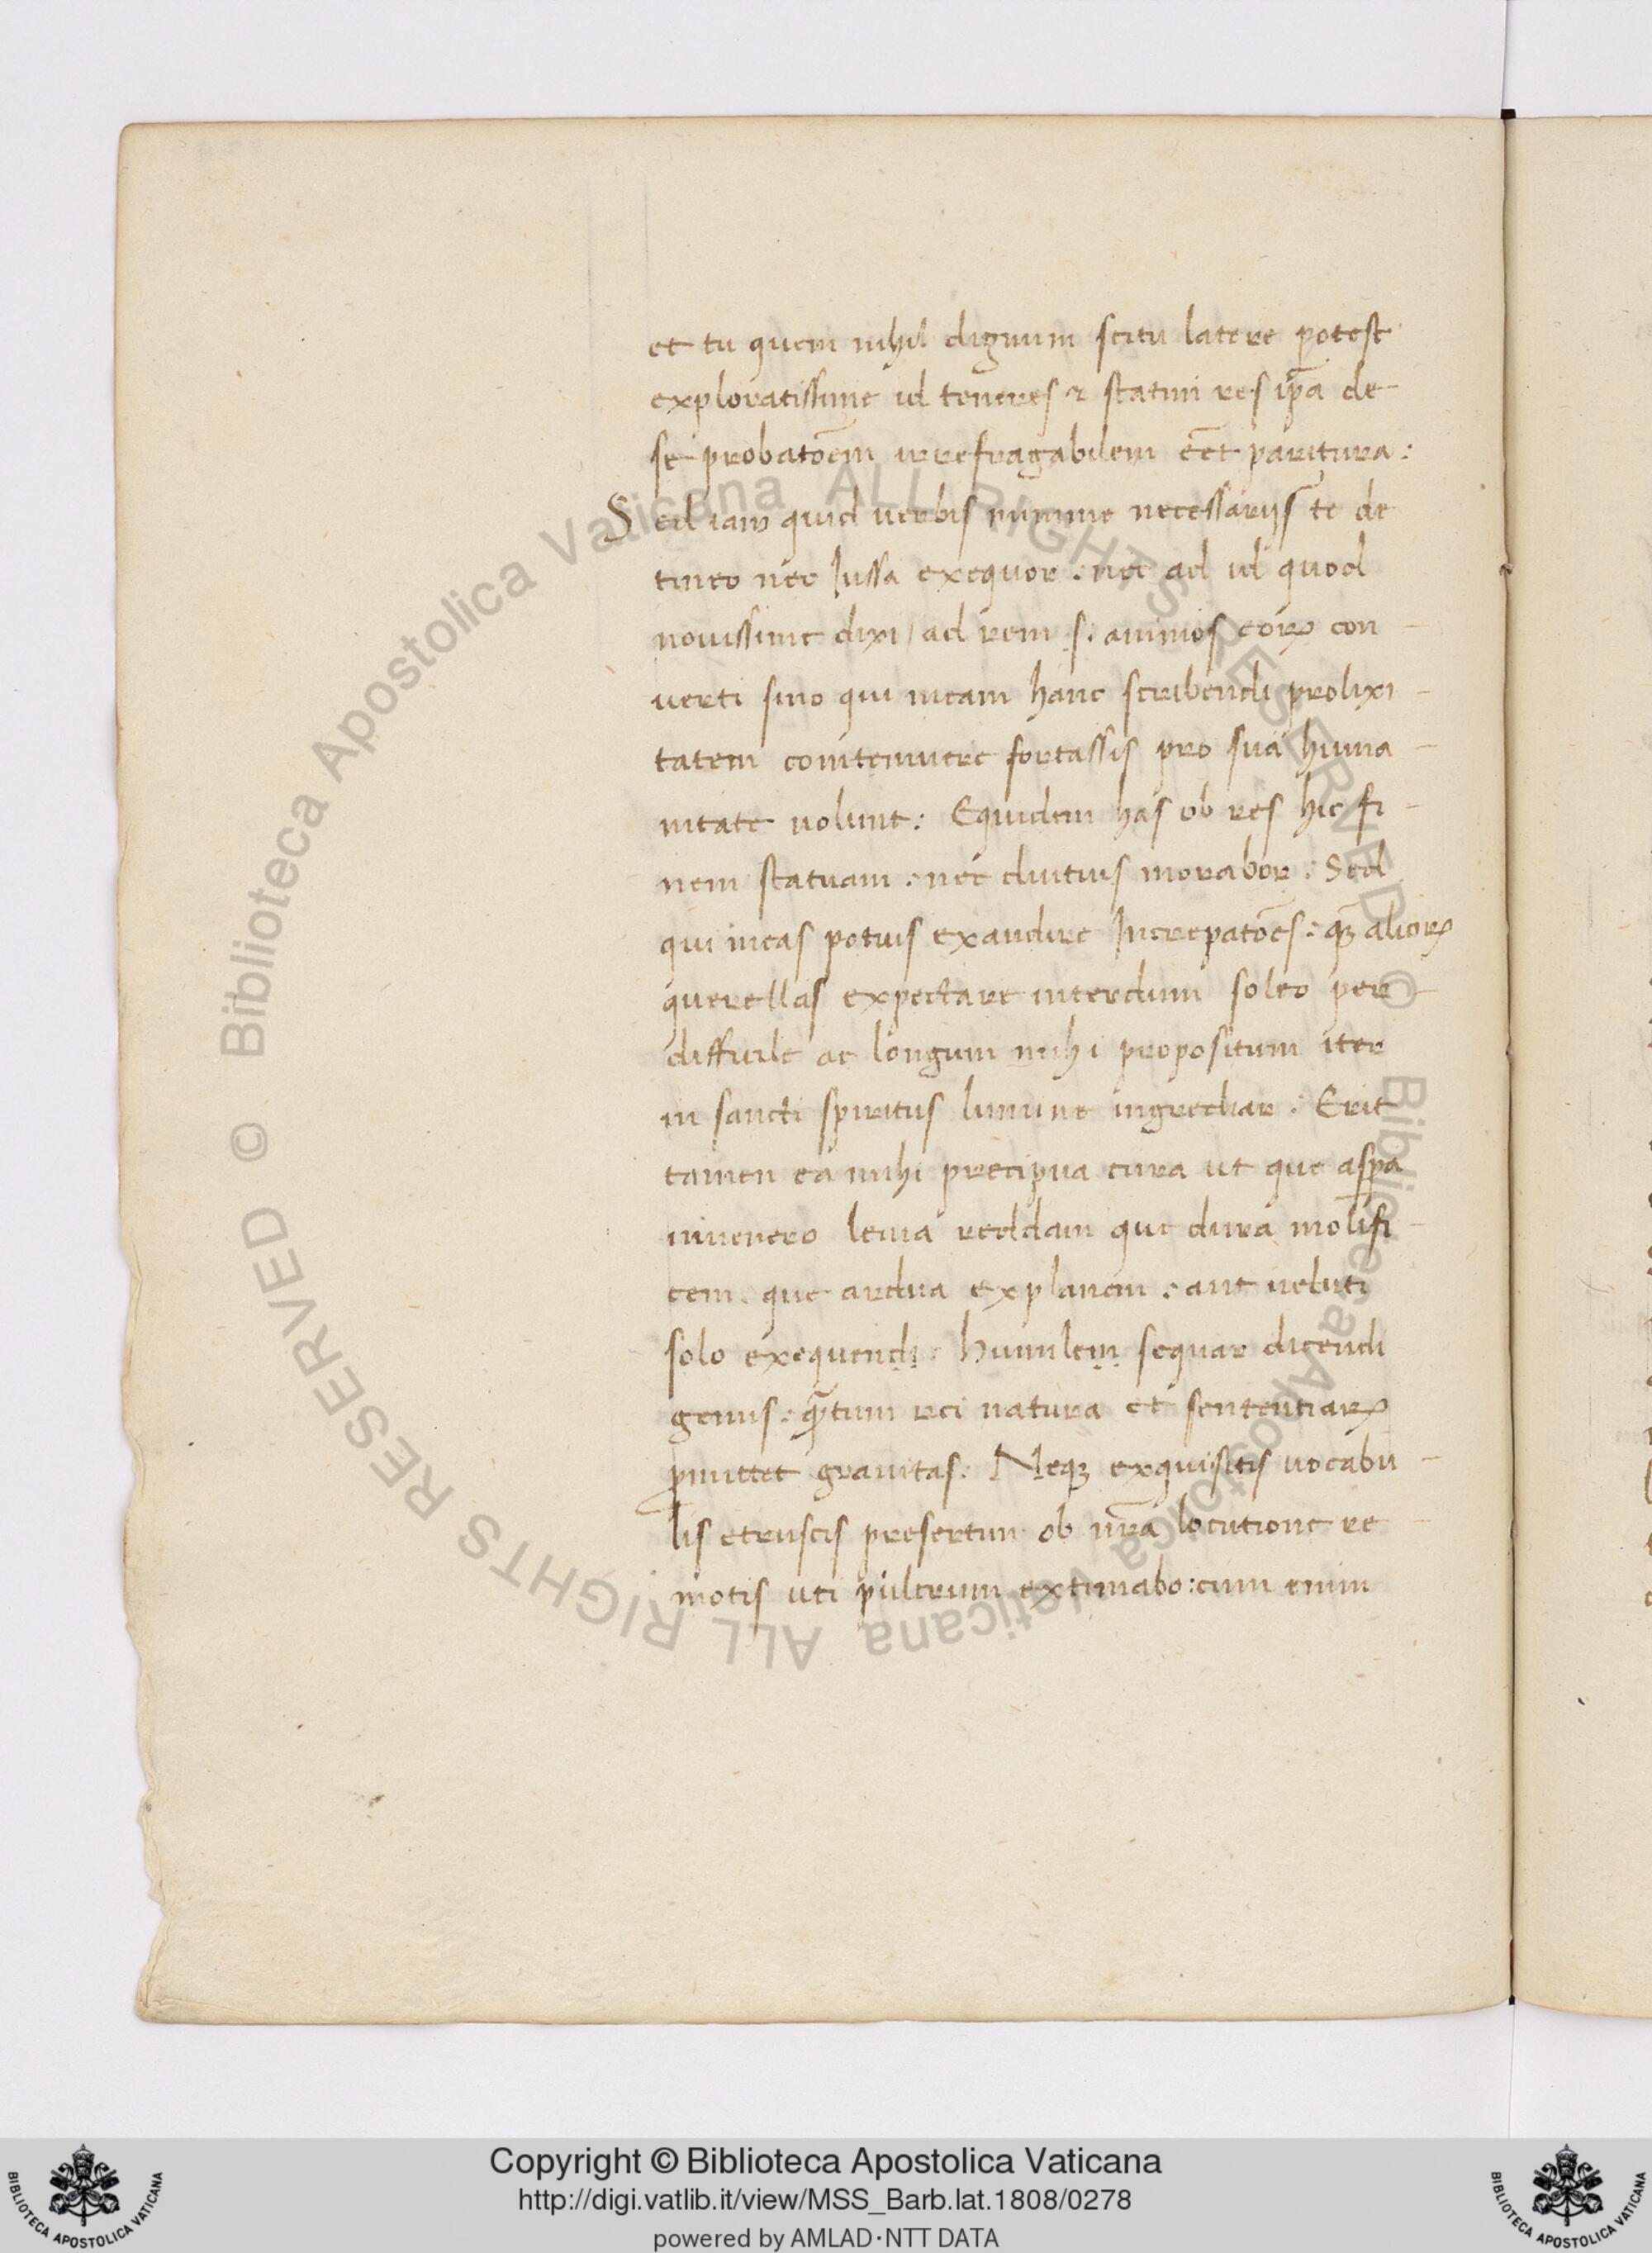 et tu quem nihil dignum scitu latere potest
exploratissime id teneres & statim res ip̄a de
se probatōem irrefragabilem eēt paritura:
Sed iam quid verbis minime necessarijs te de
tineo nec Jussa exequor: nec ad id quod
nouissime dixi / ad rem .s. animos eoꝝ con-
uerti sino qui meam hanc scribendi prolixi-
tatem contemnere fortassis pro sua huma-
nitate uolunt: Equidem has ob res hic fi-
nem statuam: nec diutius morabor: Sed
qui meas potius exaudire Increpatōes: qꝫ alioꝝ
querellas expectare interdum soleo per-
difficile ac longum mihi propositum iter
in sancti spiritus lumine ingrediar: Erit
tamen ea mihi precipua cura ut que aspa
inuenero leuia reddam que dura mollifi-
cem. que ardua explanem: aut ueluti
solo exequendi: humilem sequar dicendi
genus: qͣtum rei natura et sententiaꝝ
ꝑmittet grauitas: Neqꝫ exquisitis uocabu-
lis etruscis presertim ob nr̄a locutione re-
motis uti pulcrum extimabo: cum enim
Copyright © Biblioteca Apostolica Vaticana
http://digi.vatlib.it/view/MSS_Barb.lat.1808/0278
powered by AMLAD·NTT DATA
BIBLIOTECA APOSTOLICA VATICANA
BIBLIOTECA APOSTOLICA VATICANA
© Biblioteca Apostolica Vaticana ALL RIGHTS RESERVED © Biblioteca Apostolica Vaticana ALL RIGHTS RESERVED